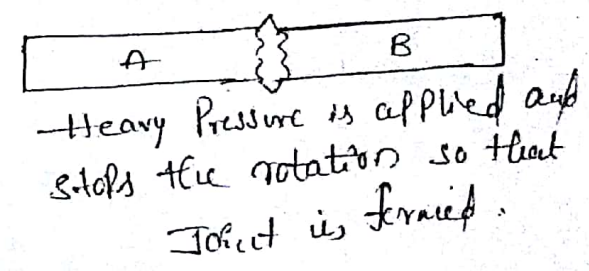 A B
Heavy Pressure is applied and
stops the rotation so that
Joint is formed.